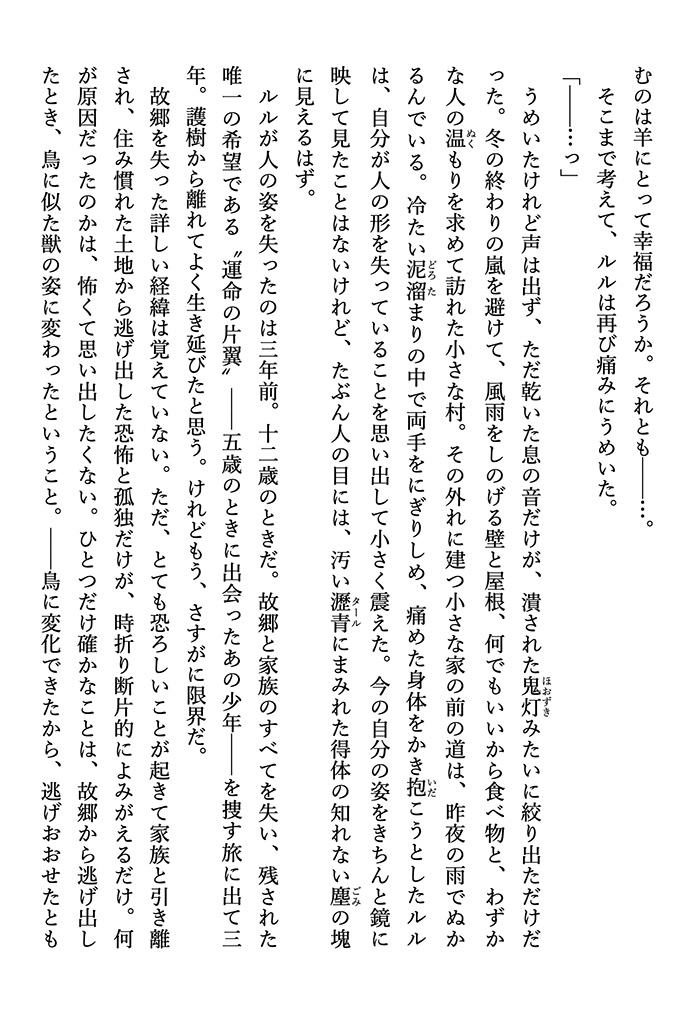 むのは羊にとって幸福だろうか。それとも――…。
そこまで考えて、ルルは再び痛みにうめいた。
「――…っ」
うめいたけれど声は出ず、ただ乾いた息の音だけが、潰された鬼灯みたいに絞り出ただけだ
った。冬の終わりの嵐を避けて、風雨をしのげる壁と屋根、何でもいいから食べ物と、わずか
な人の温もりを求めて訪れた小さな村。その外れに建つ小さな家の前の道は、昨夜の雨でぬか
るんでいる。冷たい泥溜まりの中で両手をにぎりしめ、痛めた身体をかき抱こうとしたルル
は、自分が人の形を失っていることを思い出して小さく震えた。今の自分の姿をきちんと鏡に
映して見たことはないけれど、たぶん人の目には、汚い瀝青にまみれた得体の知れない塵の塊
に見えるはず。
ルルが人の姿を失ったのは三年前。十二歳のときだ。故郷と家族のすべてを失い、残された
唯一の希望である〝運命の片翼〟――五歳のときに出会ったあの少年――を捜す旅に出て三
年。護樹から離れてよく生き延びたと思う。けれどもう、さすがに限界だ。
故郷を失った詳しい経緯は覚えていない。ただ、とても恐ろしいことが起きて家族と引き離
され、住み慣れた土地から逃げ出した恐怖と孤独だけが、時折り断片的によみがえるだけ。何
が原因だったのかは、怖くて思い出したくない。ひとつだけ確かなことは、故郷から逃げ出し
たとき、鳥に似た獣の姿に変わったということ。――鳥に変化できたから、逃げおおせたとも